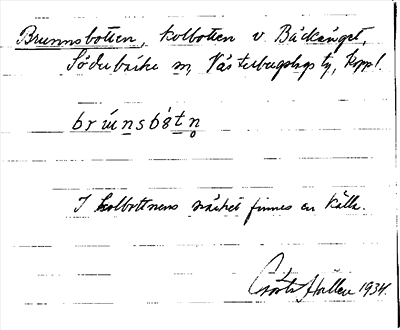 Brunnsbotten, kolbotten v. Bäckänget,
Söderbärke sn, Västerbergslags tg, Kopp l.
brúnsbòtn̥
I kolbottnens närhet finnes en källa.
Gösta Hallen 1934.